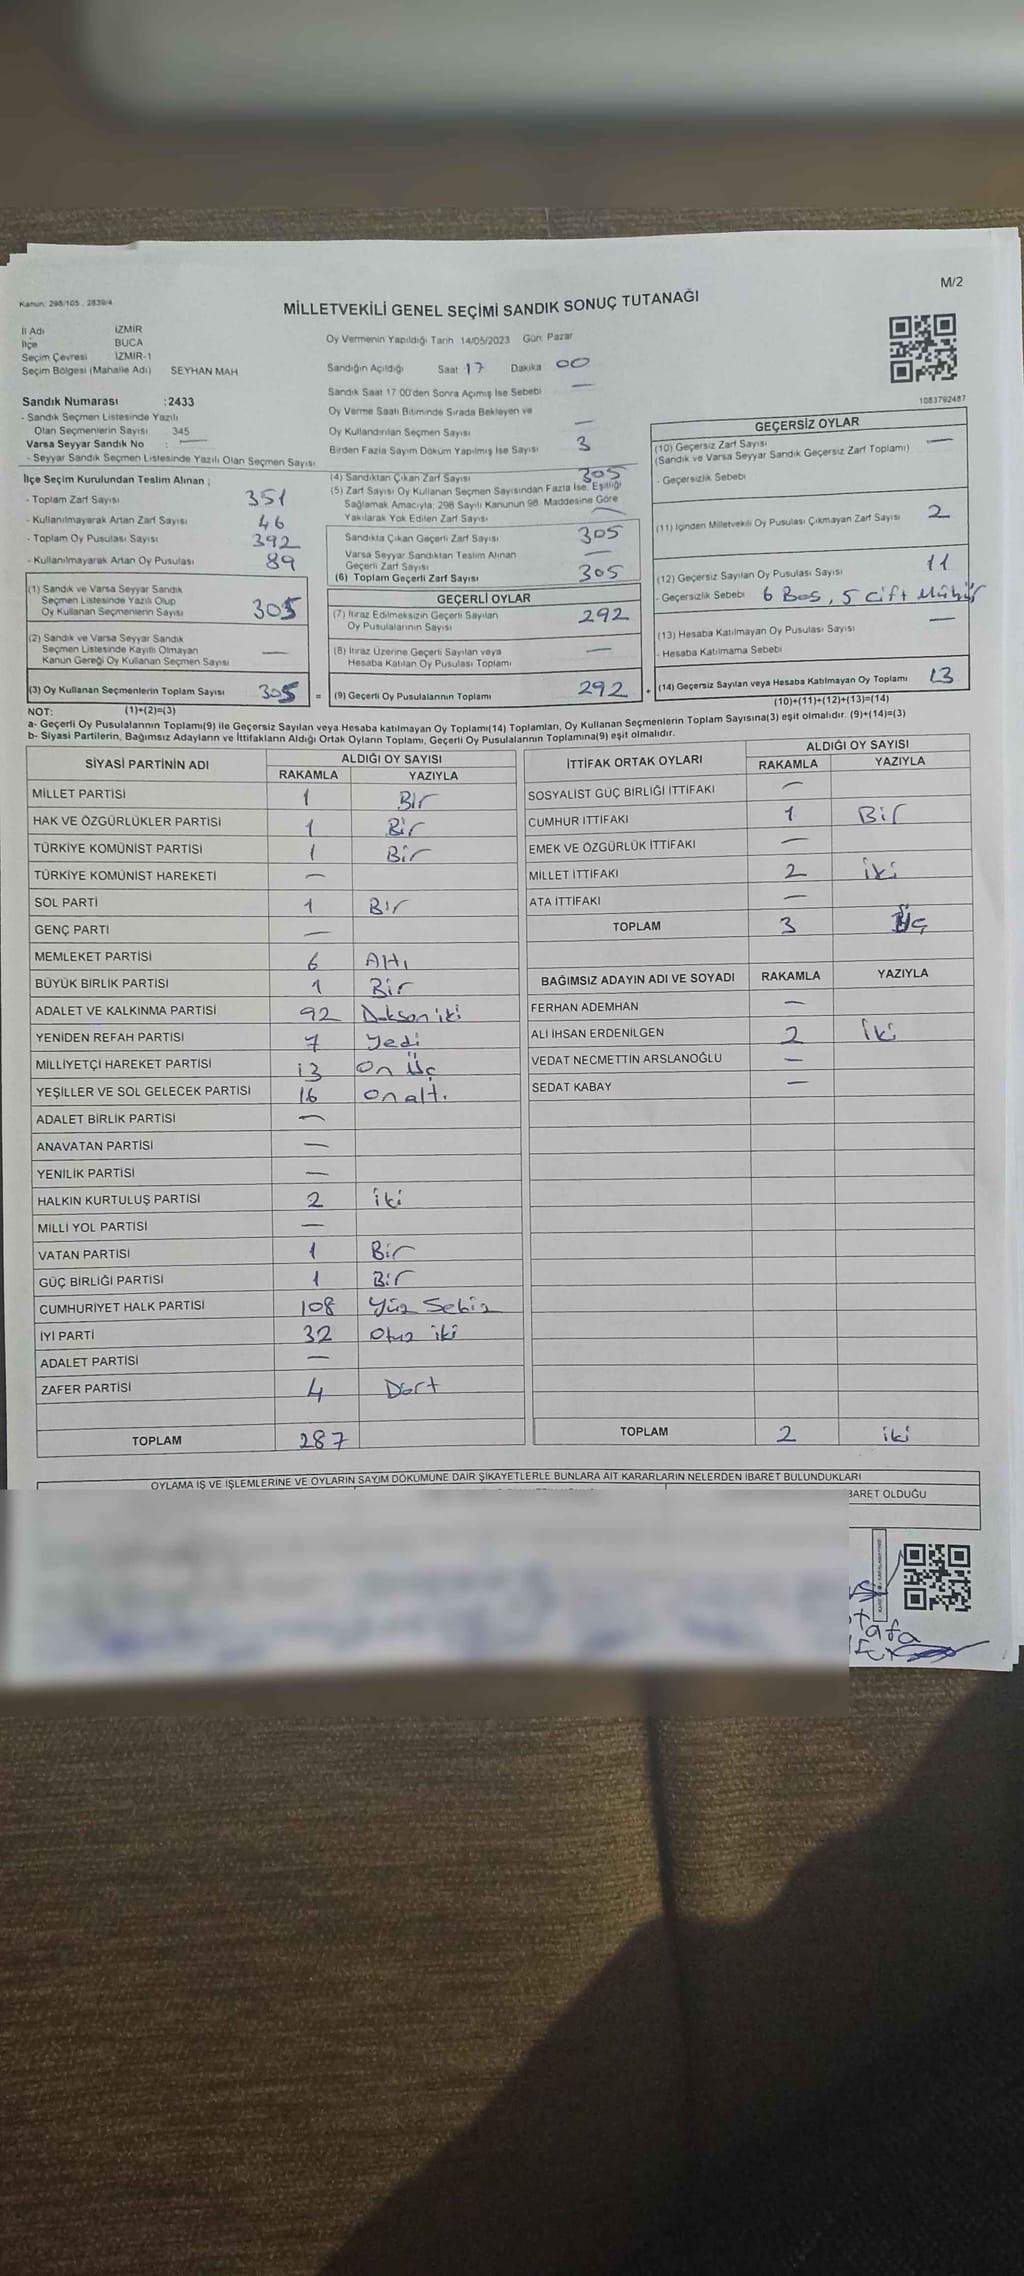 M/2
Kanun: 298/105 , 2839/4
MİLLETVEKİLİ GENEL SEÇİMİ SANDIK SONUÇ TUTANAĞI
İl Adı İZMİR
İlçe BUCA
Seçim Çevresi İZMİR-1
Seçim Bölgesi (Mahalle Adı) SEYHAN MAH
Sandık Numarası :2433
- Sandık Seçmen Listesinde Yazılı
Olan Seçmenlerin Sayısı 345
Varsa Seyyar Sandık No : —
- Seyyar Sandık Seçmen Listesinde Yazılı Olan Seçmen Sayısı
Oy Vermenin Yapıldığı Tarih 14/05/2023 Gün: Pazar
Sandığın Açıldığı Saat 17 Dakika 00
Sandık Saat 17 00'den Sonra Açımış İse Sebebi —
Oy Verme Saati Bitiminde Sırada Bekleyen ve
Oy Kullandırılan Seçmen Sayısı —
Birden Fazla Sayım Döküm Yapılmış İse Sayısı 3
1083792487
İlçe Seçim Kurulundan Teslim Alınan ;
- Toplam Zarf Sayısı 351
- Kullanılmayarak Artan Zarf Sayısı 46
- Toplam Oy Pusulası Sayısı 392
- Kullanılmayarak Artan Oy Pusulası 89
(1) Sandık ve Varsa Seyyar Sandık
Seçmen Listesinde Yazılı Olup
Oy Kullanan Seçmenlerin Sayısı 305
(2) Sandık ve Varsa Seyyar Sandık
Seçmen Listesinde Kayıtlı Olmayan
Kanun Gereği Oy Kullanan Seçmen Sayısı —
(3) Oy Kullanan Seçmenlerin Toplam Sayısı 305 =
(4) Sandıktan Çıkan Zarf Sayısı 305
(5) Zarf Sayısı Oy Kullanan Seçmen Sayısından Fazla İse, Eşitliği
Sağlamak Amacıyla, 298 Sayılı Kanunun 98. Maddesine Göre
Yakılarak Yok Edilen Zarf Sayısı —
Sandıkta Çıkan Geçerli Zarf Sayısı 305
Varsa Seyyar Sandıktan Teslim Alınan
Geçerli Zarf Sayısı —
(6) Toplam Geçerli Zarf Sayısı 305
GEÇERLİ OYLAR
(7) İtiraz Edilmeksizin Geçerli Sayılan
Oy Pusulalarının Sayısı 292
(8) İtiraz Üzerine Geçerli Sayılan veya
Hesaba Katılan Oy Pusulası Toplamı —
(9) Geçerli Oy Pusulalarının Toplamı 292 +
GEÇERSİZ OYLAR
(10) Geçersiz Zarf Sayısı —
(Sandık ve Varsa Seyyar Sandık Geçersiz Zarf Toplamı)
- Geçersizlik Sebebi
(11) İçinden Milletvekili Oy Pusulası Çıkmayan Zarf Sayısı 2
(12) Geçersiz Sayılan Oy Pusulası Sayısı 11
- Geçersizlik Sebebi 6 Boş, 5 Çift Mühür
(13) Hesaba Katılmayan Oy Pusulası Sayısı —
- Hesaba Katılmama Sebebi
(14) Geçersiz Sayılan veya Hesaba Katılmayan Oy Toplamı 13
(10)+(11)+(12)+(13)=(14)
NOT: (1)+(2)=(3)
a- Geçerli Oy Pusulalarının Toplamı(9) ile Geçersiz Sayılan veya Hesaba katılmayan Oy Toplamı(14) Toplamları, Oy Kullanan Seçmenlerin Toplam Sayısına(3) eşit olmalıdır. (9)+(14)=(3)
b- Siyasi Partilerin, Bağımsız Adayların ve İttifakların Aldığı Ortak Oyların Toplamı, Geçerli Oy Pusulalarının Toplamına(9) eşit olmalıdır.
SİYASİ PARTİNİN ADI ALDIĞI OY SAYISI
RAKAMLA YAZIYLA
MİLLET PARTİSİ 1 Bir
HAK VE ÖZGÜRLÜKLER PARTİSİ 1 Bir
TÜRKİYE KOMÜNİST PARTİSİ 1 Bir
TÜRKİYE KOMÜNİST HAREKETİ —
SOL PARTİ 1 Bir
GENÇ PARTİ —
MEMLEKET PARTİSİ 6 Altı
BÜYÜK BİRLİK PARTİSİ 1 Bir
ADALET VE KALKINMA PARTİSİ 92 Doksan iki
YENİDEN REFAH PARTİSİ 7 Yedi
MİLLİYETÇİ HAREKET PARTİSİ 13 On Üç
YEŞİLLER VE SOL GELECEK PARTİSİ 16 On altı
ADALET BİRLİK PARTİSİ —
ANAVATAN PARTİSİ —
YENİLİK PARTİSİ —
HALKIN KURTULUŞ PARTİSİ 2 iki
MİLLİ YOL PARTİSİ —
VATAN PARTİSİ 1 Bir
GÜÇ BİRLİĞİ PARTİSİ 1 Bir
CUMHURİYET HALK PARTİSİ 108 Yüz Sekiz
İYİ PARTİ 32 Otuz iki
ADALET PARTİSİ —
ZAFER PARTİSİ 4 Dört
TOPLAM 287
İTTİFAK ORTAK OYLARI ALDIĞI OY SAYISI
RAKAMLA YAZIYLA
SOSYALİST GÜÇ BİRLİĞİ İTTİFAKI —
CUMHUR İTTİFAKI 1 Bir
EMEK VE ÖZGÜRLÜK İTTİFAKI —
MİLLET İTTİFAKI 2 iki
ATA İTTİFAKI —
TOPLAM 3 Üç
BAĞIMSIZ ADAYIN ADI VE SOYADI RAKAMLA YAZIYLA
FERHAN ADEMHAN —
ALİ İHSAN ERDENİLGEN 2 İki
VEDAT NECMETTİN ARSLANOĞLU —
SEDAT KABAY —
TOPLAM 2 iki
OYLAMA İŞ VE İŞLEMLERİNE VE OYLARIN SAYIM DÖKÜMÜNE DAİR ŞİKAYETLERLE BUNLARA AİT KARARLARIN NELERDEN İBARET BULUNDUKLARI
BARET OLDUĞU